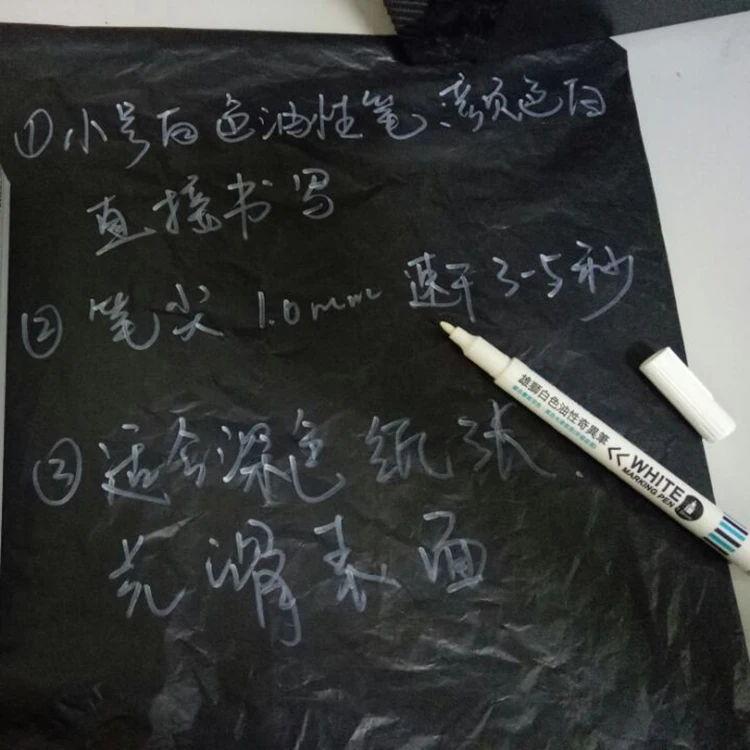 ①小号白色油性笔 颜色白
直接书写
②笔尖 1.0mm 速干3-5秒
③适合深色纸张、
光滑表面
雄獅白色油性奇異筆
WHITE
MARKING PEN